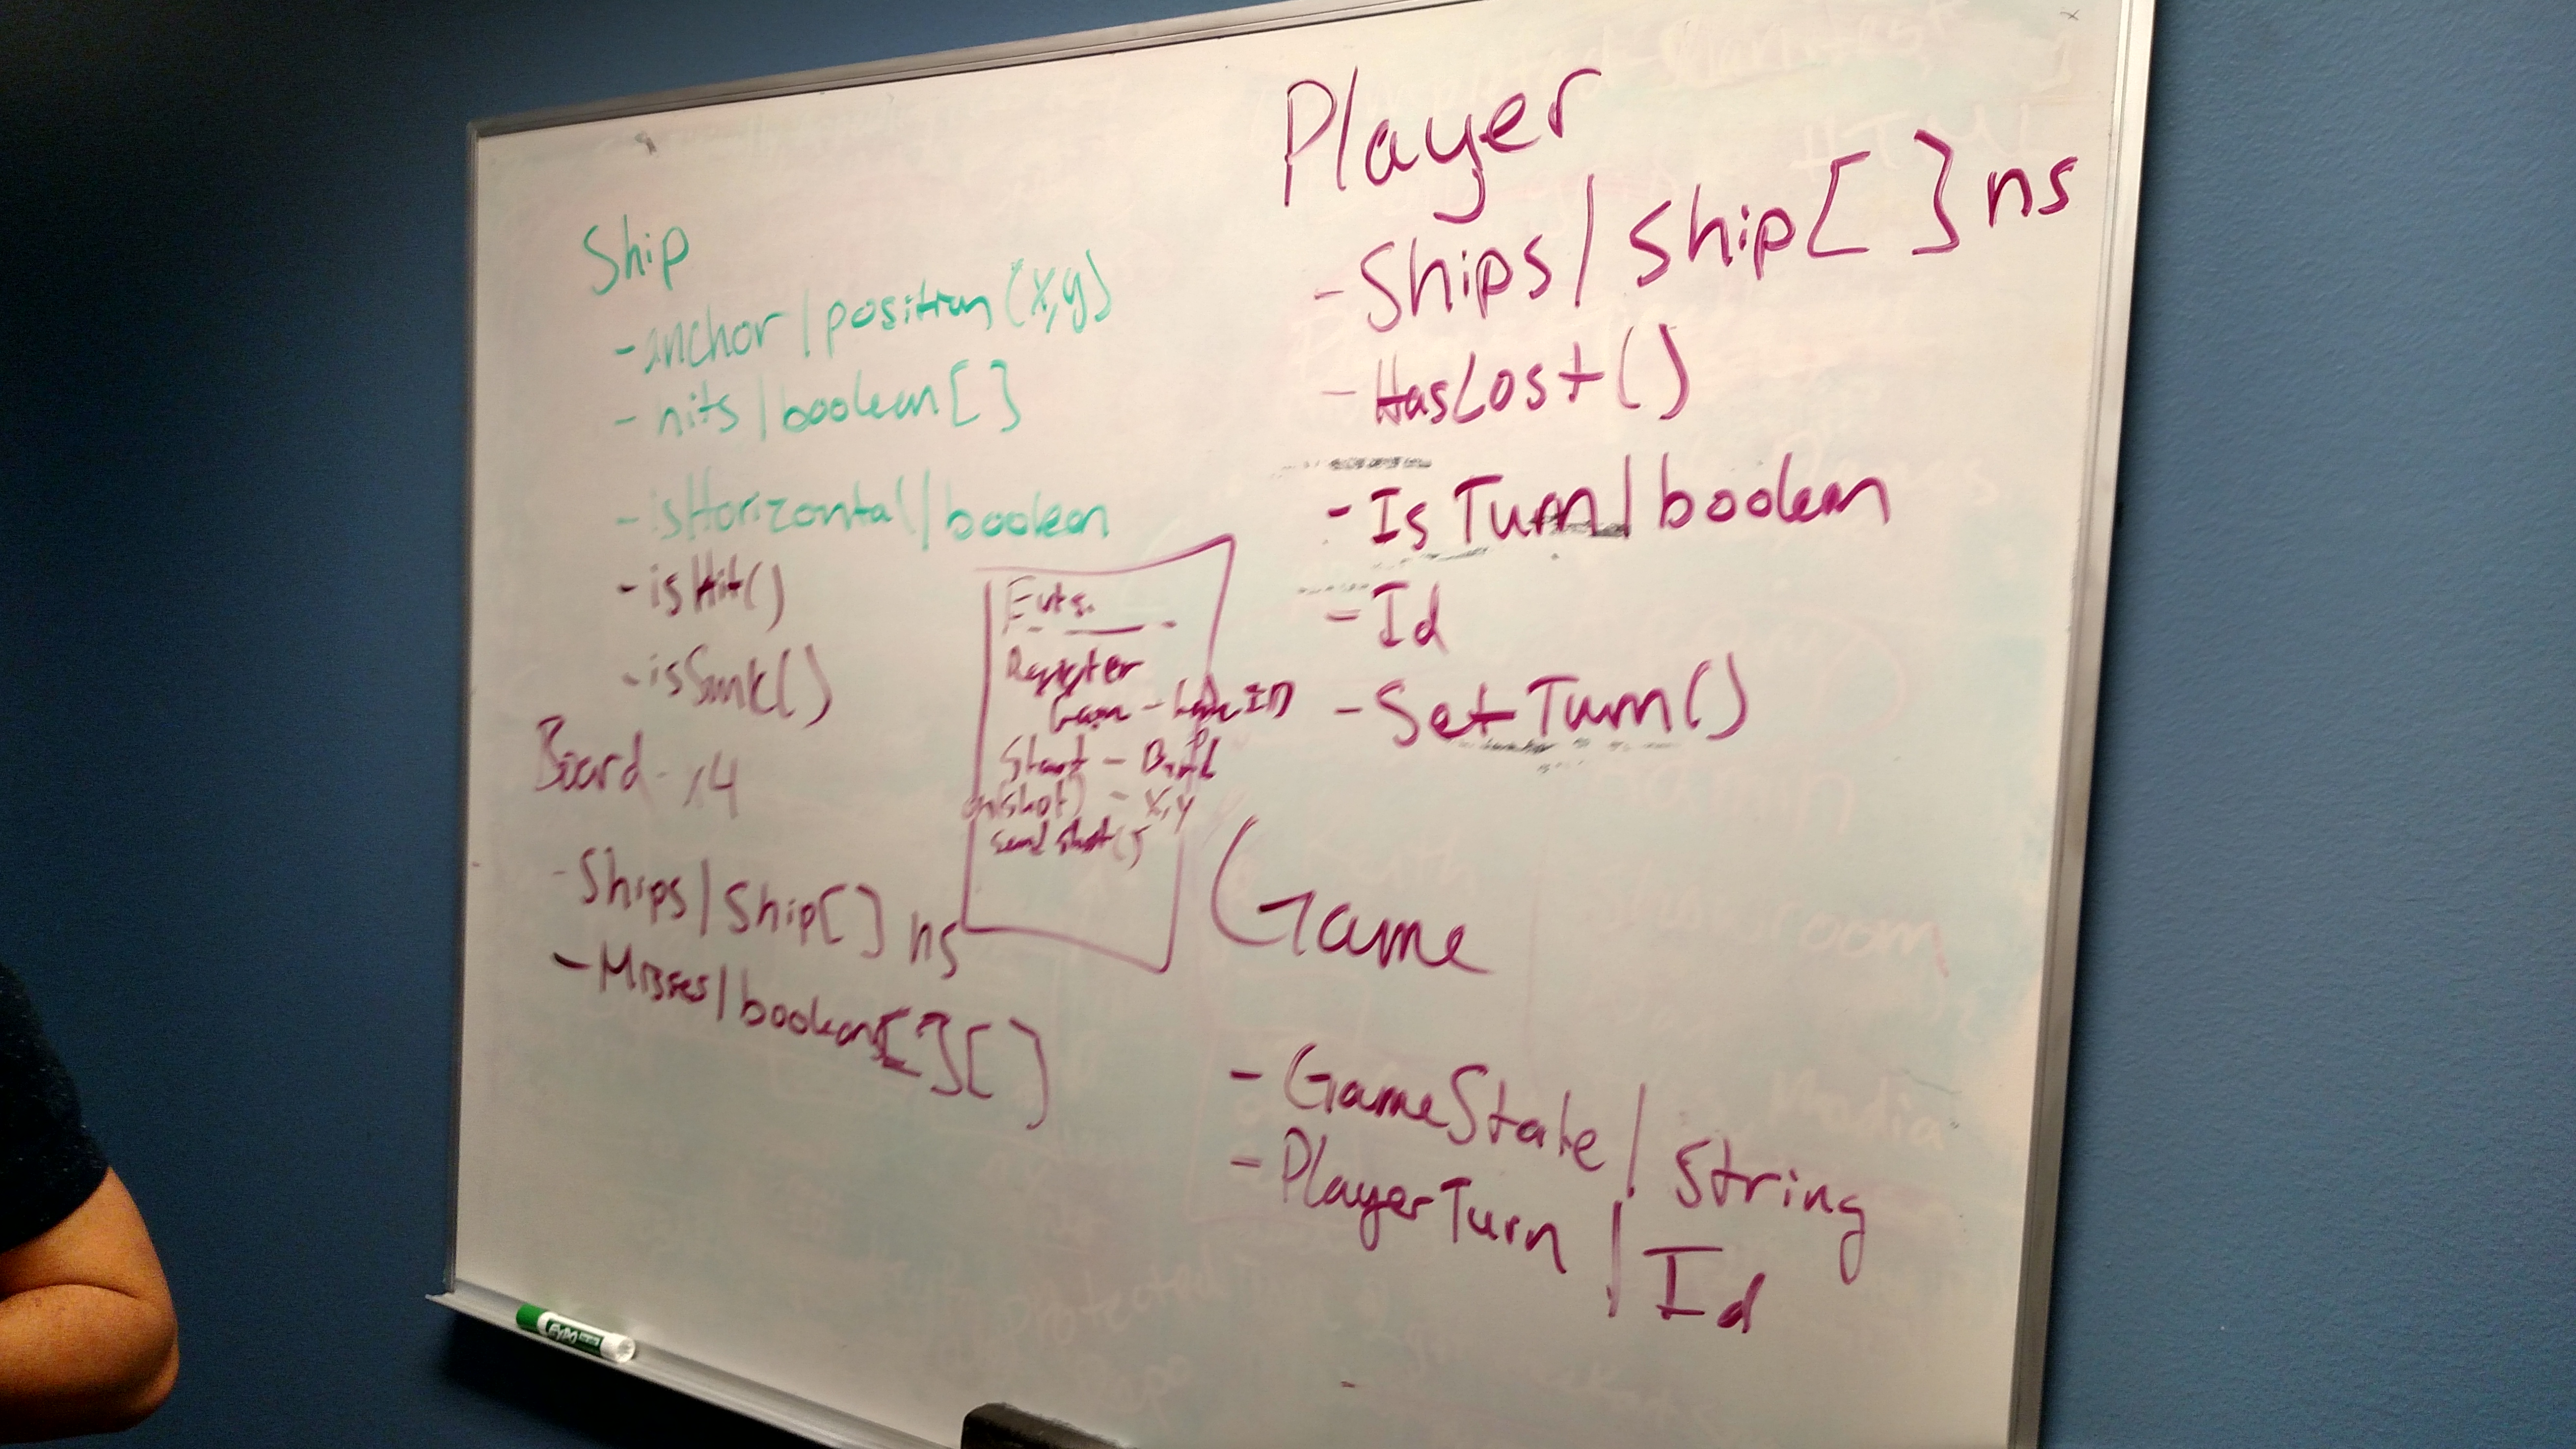 Ship
- anchor | position (x,y)
- hits | boolean[]
- isHorizontal | boolean
- isHit()
- isSunk()
Board - x4
- Ships | Ship[] ns
- Misses | boolean[][]
Evts.
Register
Game - Game ID
Start -
on(shot) - x,y
send shot()
Player
- Ships | Ship[] ns
- HasLost()
- IsTurn | boolean
- Id
- SetTurn()
Game
- GameState | String
- PlayerTurn | Id
EXPO